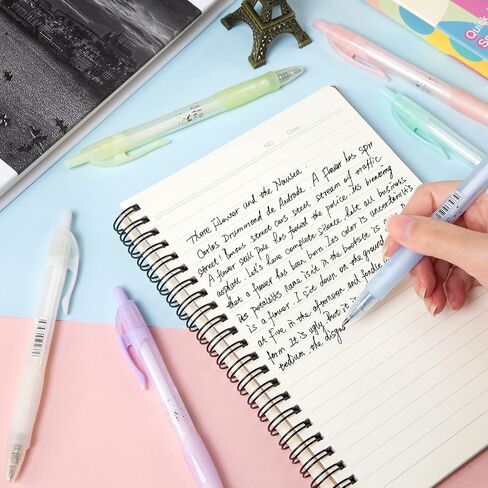 NO.
Date
There Flower and the Nausea
Carlos Drummond de Andrade A flower has spr
street! buses street cars steel stream of traffic
A flower still pale has fooled the police, its breaking
asplate. Let's have complete silence hate all business
that a flower has been born. Its color is uncertain It's
its petals Its name isn't in the books It is
is a flower. I sit down on the ground
at five in the afternoon and
form It is ugly But it is
tedium. the disgus
Quick